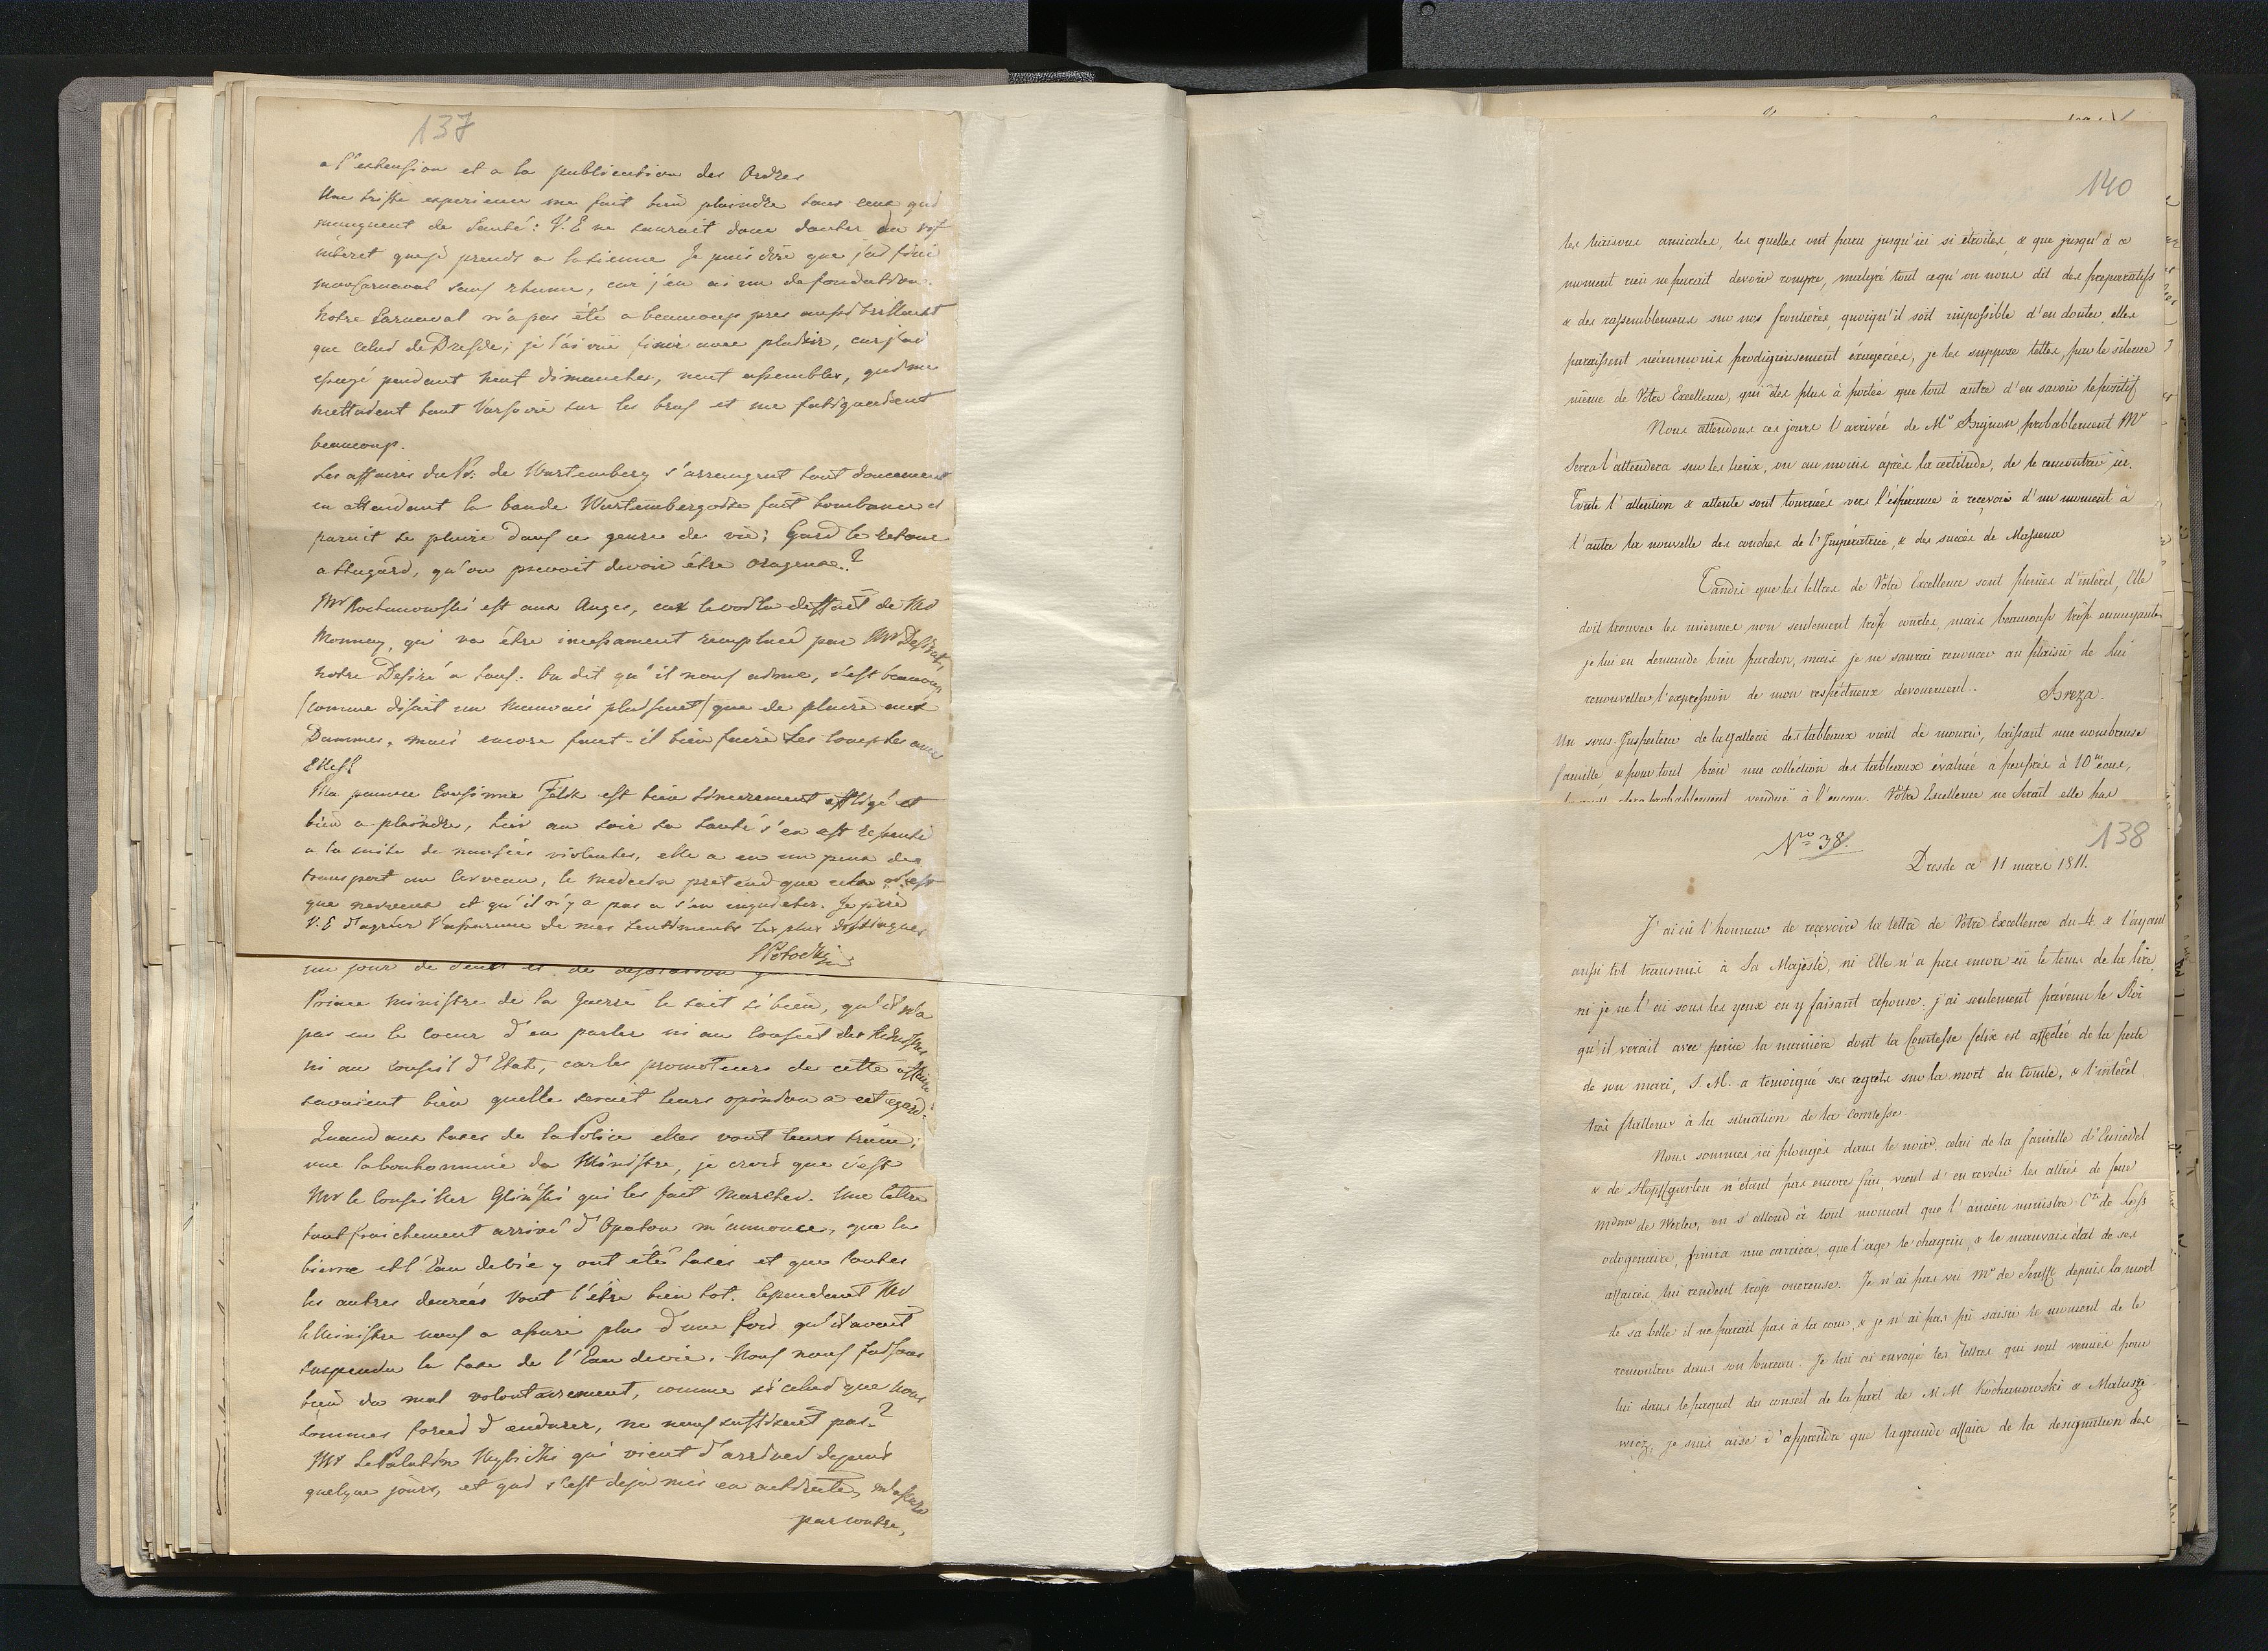 137
a l'extension et a la publication des Ordres
Une triste experience me fait bien plaindre tous ceux qui
manquent de Santé: V. E ne saurait donc douter du vif
intêret que je prends a la sienne Je puis dire que j'ai fini
mon Carnaval sans rhume, car j'en ai un de fondation.
Notre Carnaval n'a pas été a beaucoup pres aussi brillant
que celui de Dresde; je l'ai vû finir avec plaisir, car j'ai
essuyé pendant huit dimanches, huit assembles, qui me
mettaient tout Varsovie sur les bras et me fatiguaient
beaucoup.
Les affaires du Pr. de Wurtemberg s'arrangent tout doucement
en attendant la bande Wurtembergoise fait bombance et
parait se plaire dans ce genre de vie; Gard le retour
a Stugard, qu'on prevoit devoir être orageux.?
Mr Kochanowski est aux Anges, car le voila deffait de Mr
Monnay, qui va être incessament remplacé par Mr
notre Desiré a tous. On dit qu'il nous aime, c'est beaucoup
(comme disait un mauvais plaisant) que de plaire aux
Dammes, mais encore faut-il bien faire les comptes avec
Elles!
Ma pauvre Cousinne Felix est bien sincerement affligé et
bien a plaindre, hier au soir sa santé s'en est resentie
a la suite de nausées violentes, elle a eu un peu de
transport au Cerveau, le medecin pretend que cela n'est
que nerveux et qu'il n'y a pas a s'en inquieter. Je prie
V. E d'agréer l'assurance de mes sentiments les plus distingués
SPotocki
un jour de deuil et de desolation
Prince Ministre de la Guerre le sait si bien, qu'il n'a
pas eu le coeur d'en parler ni au Conseil des Ministres
ni au conseil d'Etat, car les promoteurs de cette affaire
savaient bien quelle serait leurs opinion a cet egard.
Quand aux taxes de la Police elles vont leurs train;
vue la bonhommie du Ministre, je crois que c'est
Mr le Conseiller Gliński qui les fait marcher. Une lettre
tout fraichement arrivé d'Opatow m'annonce, que la
bierre et l'Eau de vie y ont été taxés et que toutes
les autres denrées vont l'être bien tot. Cependant Mr
le Ministre nous a assuré plus d'une fois qu'il avait
suspendu la taxe de l'Eau de vie. Nous nous faisons
bien du mal volontairement, comme si celui que nous
sommes forcé d'endurer, ne nous suffisait pas?
Mr Le Palatin Wybicki qui vient d'arriver depuis
quelque jours, et qui s'est deja mis en activité, m'assure
par contre,
140
les liaisons amicales, les quelles ont paru jusqu'ici si étroites, & que jusqu'à ce
moment rien ne parait devoir rompre, malgré tout ce qu'on nous dit des preparatifs
& des rassemblemens sur nos frontières, quoiqu'il soit impossible d'en douter, elles
paraissent néanmoins prodigieusement exagerées, je les suppose telles, par le silence
même de Votre Excellence, qui êtes plus à portée que tout autre d'en savoir le positif
Nous attendons ces jours l'arrivée de Mr Bignon, probablement Mr
Serra l'attendra sur les lieux, ou au moins après la certitude, de le rencontrer ici.
Toute l'attention & attente sont tournées vers l'espérance à recevoir d'un moment à
l'autre la nouvelle des couches de l'Impératrice, & des succès de Massena
Tandis que les lettres de Votre Excellence sont pleines d'intêret, Elle
doit trouver les miennes non seulement trop courtes, mais beaucoup trop ennuyantes
je lui en demande bien pardon, mais je ne saurai renoncer au plaisir de lui
renouveller l'expression de mon respectueux devouement. Breza.
Un sous-Inspecteur de la Gallerie des tableaux vient de mourir, laissant une nombreuse
famille & pour tout bien une collection des tableaux évalué à peuprès à 10m écus,
la quelle sera probablement vendue à l'encan. Votre Excellence ne serait elle pas
138
No 38.
Dresde ce 11 mars 1811.
J'ai eû l'honneur de recevoir la lettre de Votre Excellence du 4. & l'ayant
aussi tot transmis à Sa Majésté, ni Elle n'a pas encore eû le tems de la lire,
ni je ne l'ai sous les yeux en y faisant reponse. j'ai seulement prévenu le Roi
qu'il verait avec peine la manière dont la Comtesse felix est affectée de la perte
de son mari, S. M. a temoigné ses regrets sur la mort du Comte, & l'intérêt
très flatteur à la situation de la Comtesse.
Nous sommes ici plongés dans le noir, celui de la famille d'Einsiedel
& de Hopffgarten n'étant pas encore fini, vient d'en revetir les alliés de feue
Mdme de Werter, on s'attend à tout moment que l'ancien ministre Cte de Loss
octogenaire, finira une carriere, que l'age le chagrin, & le mauvais état de ses
affaires lui rendent trop onereuse. Je n'ai pas vû Mr de Senfft depuis la mort
de sa belle il ne parait pas à la cour, & je n'ai pas pû saisir le moment de le
rencontrer dans son bureau. Je lui ai envoyé les lettres qui sont venües pour
lui dans le paquet du conseil de la part de M. M Kochanowski & Matusze
wicz, je suis aise d'apprendre que la grande affaire de la designation des